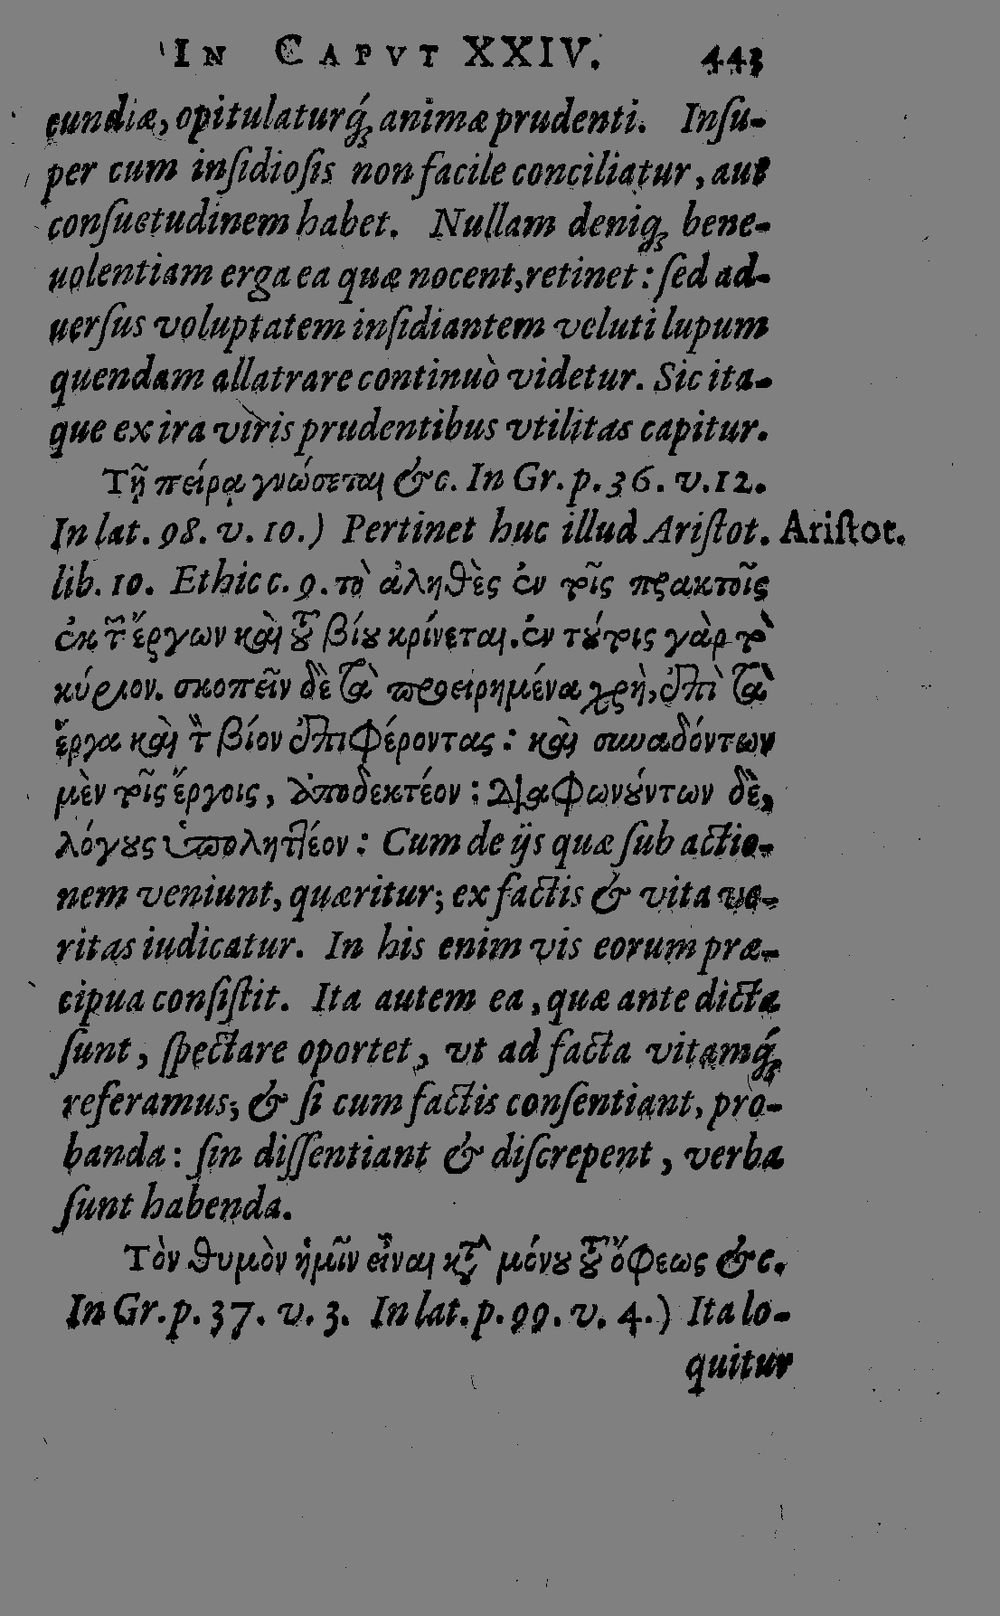 IN CAPVT XXIV. 443
cundiæ, opitulaturq́; animæ prudenti. Inſu-
per cum inſidioſis non facile conciliatur, aut
conſuetudinem habet. Nullam deniq; bene-
uolentiam erga ea quæ nocent, retinet: ſed ad-
uerſus voluptatem inſidiantem veluti lupum
quendam allatrare continuò videtur. Sic ita-
que ex ira viris prudentibus vtilitas capitur.
Τῇ πείρᾳ γνώσεται &c. In Gr. p. 36. v. 12.
In lat. 98. v. 10.) Pertinet huc illud Ariſtot. Ariſtot.
lib. 10. Ethic c. 9. τὸ ἀληθὲς ἐν τοῖς πρακτοῖς
ἐκ τῶν ἔργων καὶ τοῦ βίου κρίνεται. ἐν τούτοις γὰρ τὸ
κύριον. σκοπεῖν δὲ τὰ προειρημένα χρὴ, ἐπὶ τὰ
ἔργα καὶ τὸν βίον ἐπιφέροντας: καὶ συναδόντων
μὲν τοῖς ἔργοις, ἀποδεκτέον: διαφωνούντων δὲ,
λόγους ὑποληπτέον: Cum de ijs quæ ſub actio-
nem veniunt, quæritur; ex factis & vita ve-
ritas iudicatur. In his enim vis eorum præ-
cipua conſiſtit. Ita autem ea, quæ ante dicta
ſunt, ſpectare oportet, vt ad facta vitamq́;
referamus; & ſi cum factis conſentiant, pro-
banda: ſin diſſentiant & diſcrepent, verba
ſunt habenda.
Τὸν θυμὸν ἡμῖν εἶναι κατὰ μόνου τοῦ ὄφεως &c.
In Gr. p. 37. v. 3. In lat. p. 99. v. 4.) Ita lo-
quitur